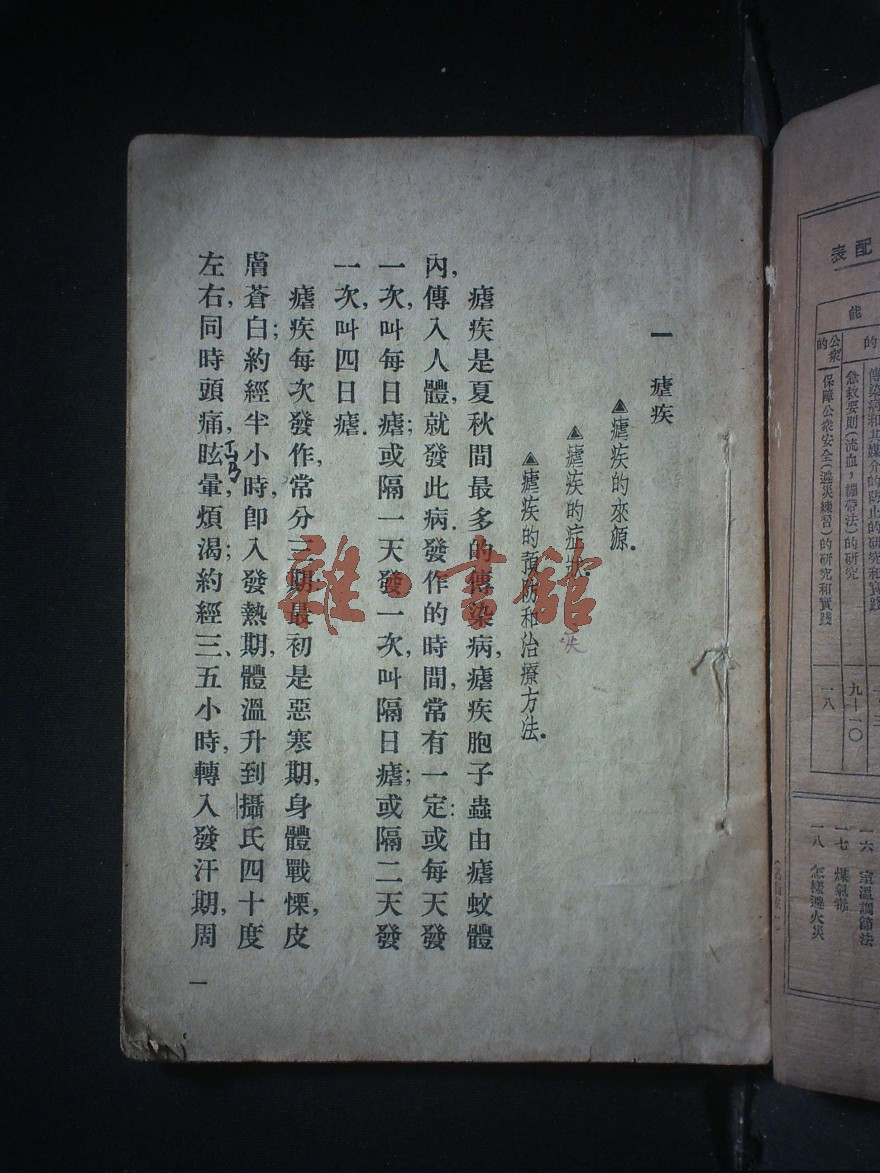 配表
能
的
公衆的
傳染病和其媒介的防止的研究和實踐
急救要則(流血，繃帶法)的研究
九—一〇
保障公衆安全(避災練習)的研究和實踐
一八
一六　室溫調節法
一七　煤氣毒
一八　怎樣避火災
一　瘧疾
▲瘧疾的來源．
▲瘧疾的症狀．
▲瘧疾的預防和治療方法．
疾
瘧疾是夏秋間最多的傳染病，瘧疾胞子蟲由瘧蚊體
內，傳入人體，就發此病．發作的時間，常有一定：或每天發
一次，叫每日瘧；或隔一天發一次，叫隔日瘧；或隔二天發
一次，叫四日瘧．
瘧疾每次發作，常分三期：最初是惡寒期，身體戰慄，皮
膚蒼白；約經半小時，卽入發熱期，體溫升到攝氏四十度
左右，同時頭痛，眩暈，煩渴；約經三、五小時，轉入發汗期，周
一
雜·書館